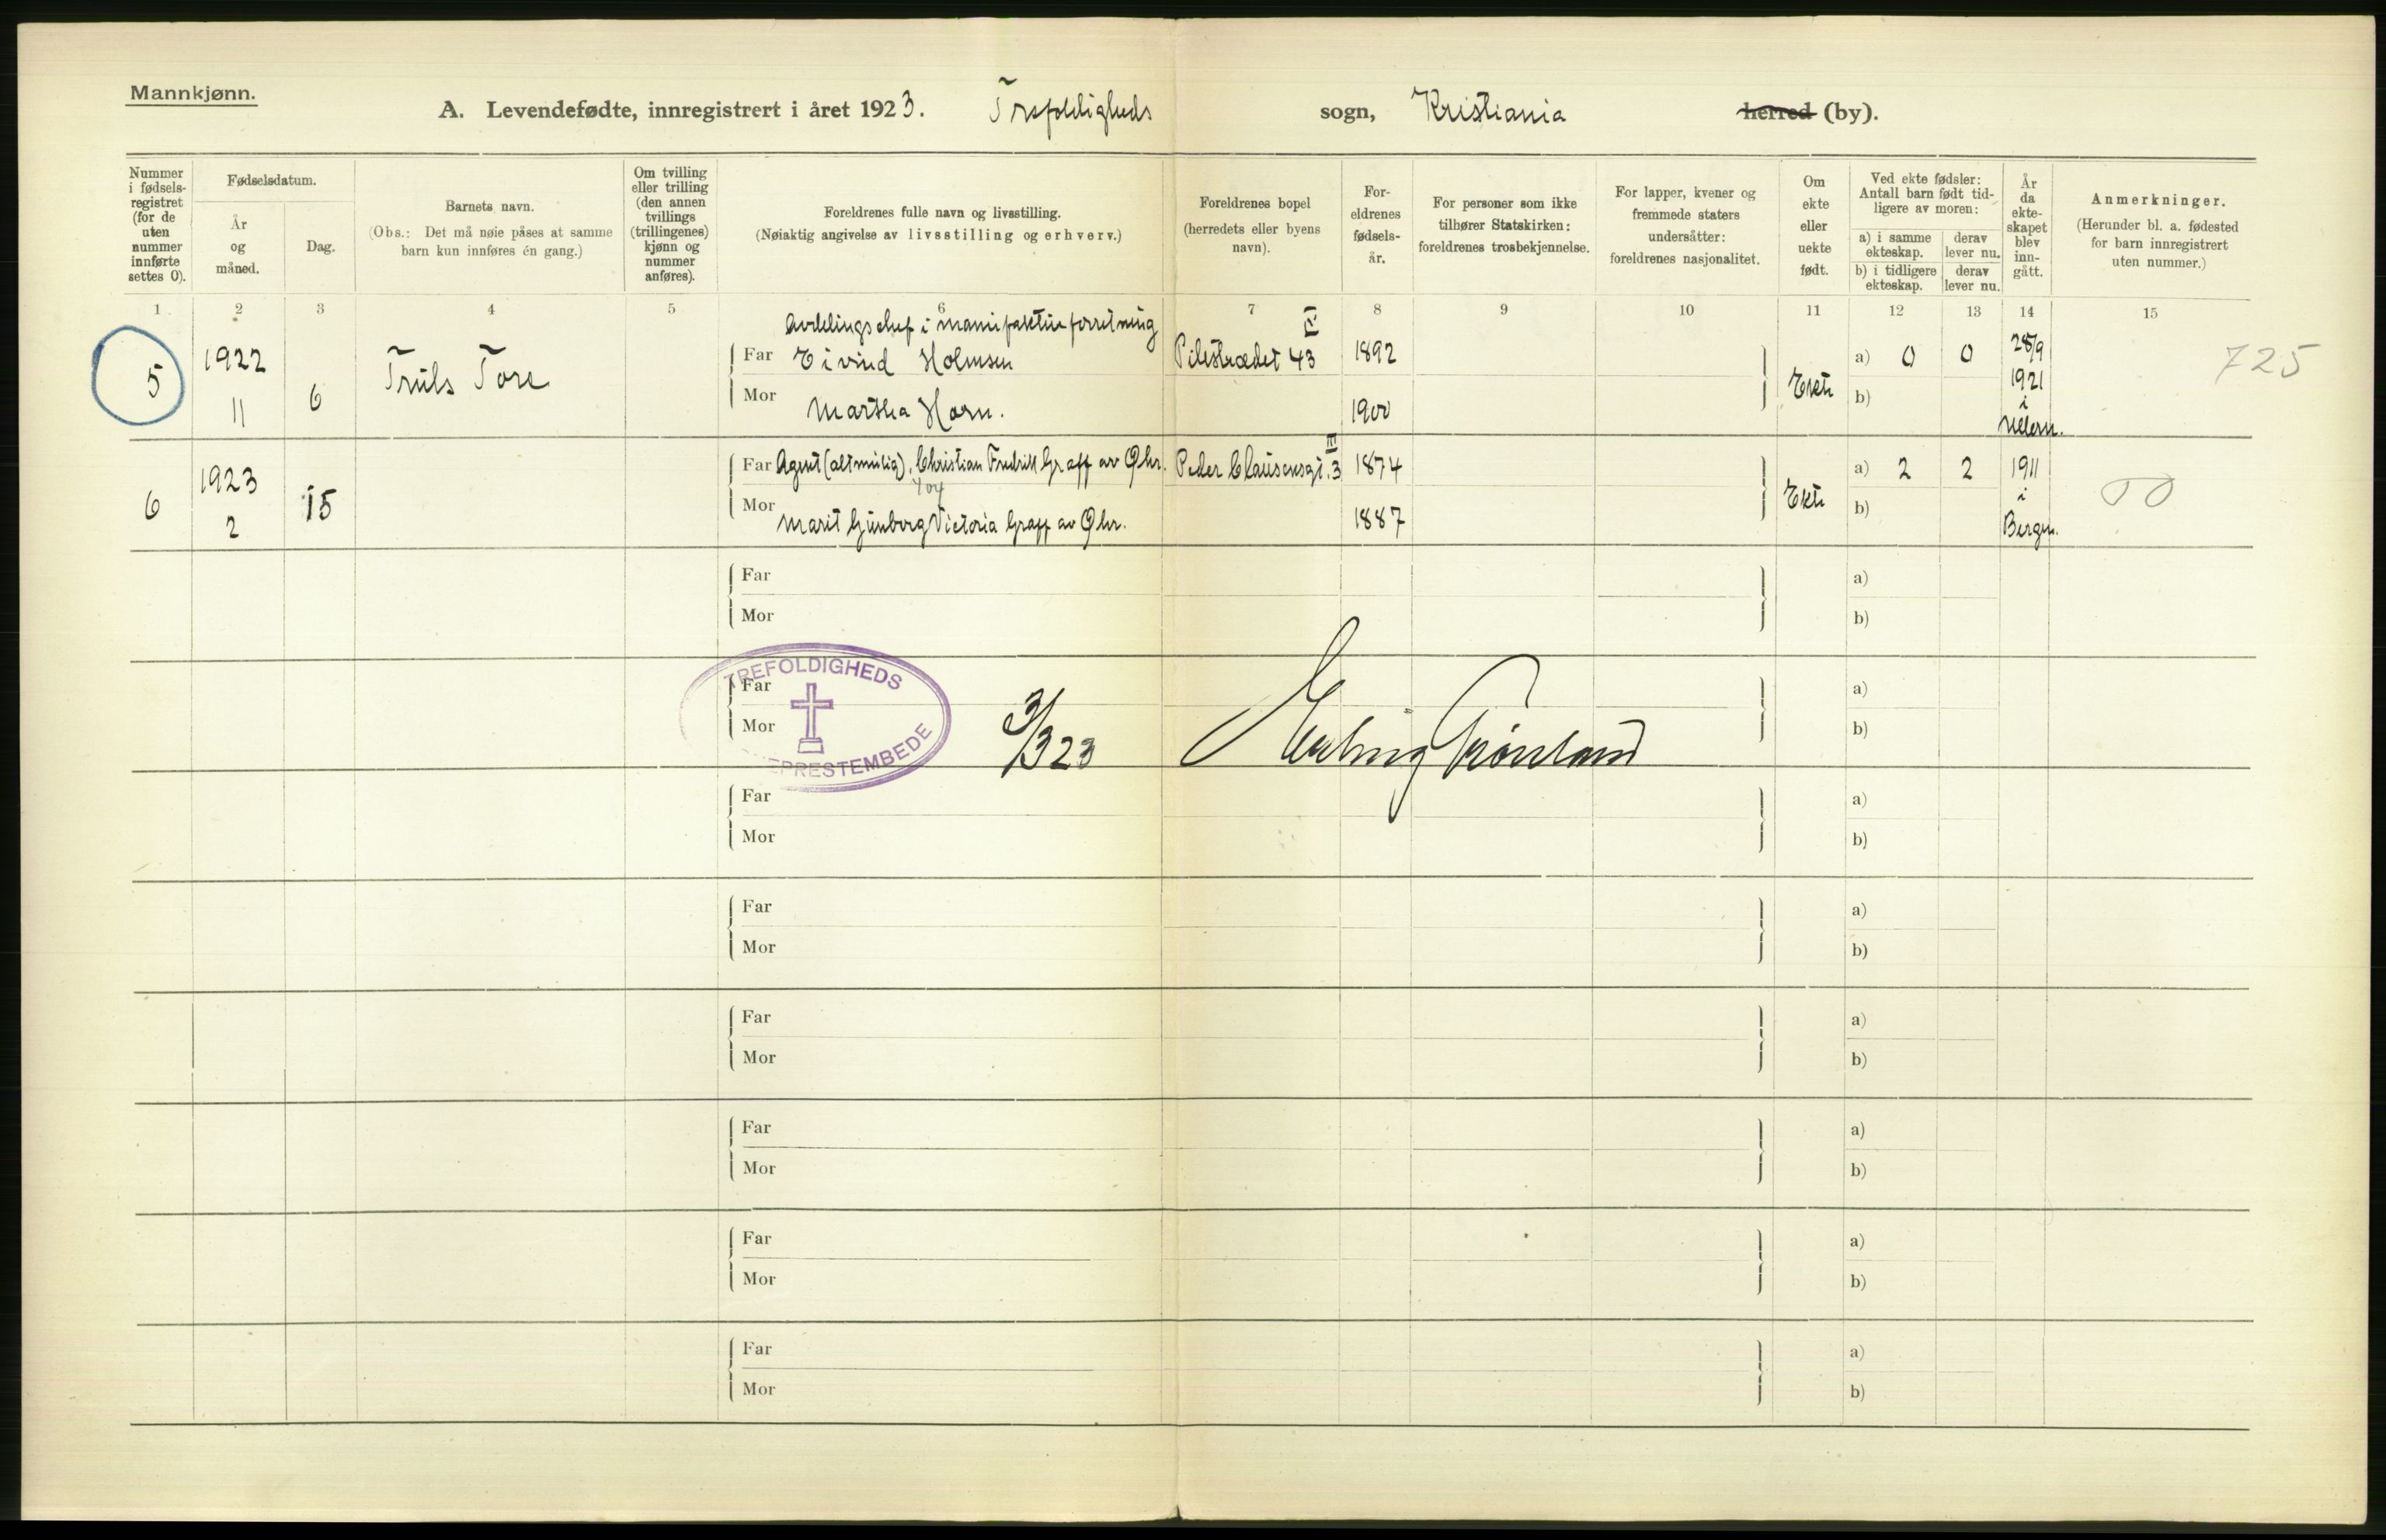 Mannkjønn.
A. Levendefødte, innregistrert i året 1923. Trefoldigheds sogn, Kristiania herred (by).
Nummer i fødselsregistret (for de uten nummer innførte settes 0).
Fødselsdatum.
År og måned.
Dag.
Barnets navn.
(Obs.: Det må nøie påses at samme barn kun innføres én gang.)
Om tvilling eller trilling (den annen tvillings (trillingenes) kjønn og nummer anføres).
Foreldrenes fulle navn og livsstilling.
(Nøiaktig angivelse av livsstilling og erhverv.)
Foreldrenes bopel
(herredets eller byens navn).
Foreldrenes fødselsår.
For personer som ikke tilhører Statskirken: foreldrenes trosbekjennelse.
For lapper, kvener og fremmede staters undersåtter: foreldrenes nasjonalitet.
Om ekte eller uekte født.
Ved ekte fødsler: Antall barn født tidligere av moren:
a) i samme ekteskap.
derav lever nu.
b) i tidligere ekteskap.
derav lever nu.
År da ekteskapet blev inngått.
Anmerkninger.
(Herunder bl. a. fødested for barn innregistrert uten nummer.)
1 2 3 4 5 6 7 8 9 10 11 12 13 14 15
Avdelingschef i manufakturforretning
5 1922 11 6 Truls Tore
Far Eivind Holmsen Pilestrædet 43 IV 1892
Mor Martha Horn. 1900
Ekte a) 0 0 b) 28/9 1921 i Ullern. 725
6 1923 2 15
Far Agent (altmulig), Christian Fredrik Graff av Øhr. Peder Clausensgt. 3 III 1874
Mor Marit Gunborg Victoria Graff av Øhr. 1887
Ekte a) 2 2 b) 1911 i Bergen.
Far a)
Mor b)
Far a)
Mor b)
TREFOLDIGHEDS
EPRESTEMBEDE
3/3 23 Erling Grønland
Far a)
Mor b)
Far a)
Mor b)
Far a)
Mor b)
Far a)
Mor b)
Far a)
Mor b)
Far a)
Mor b)